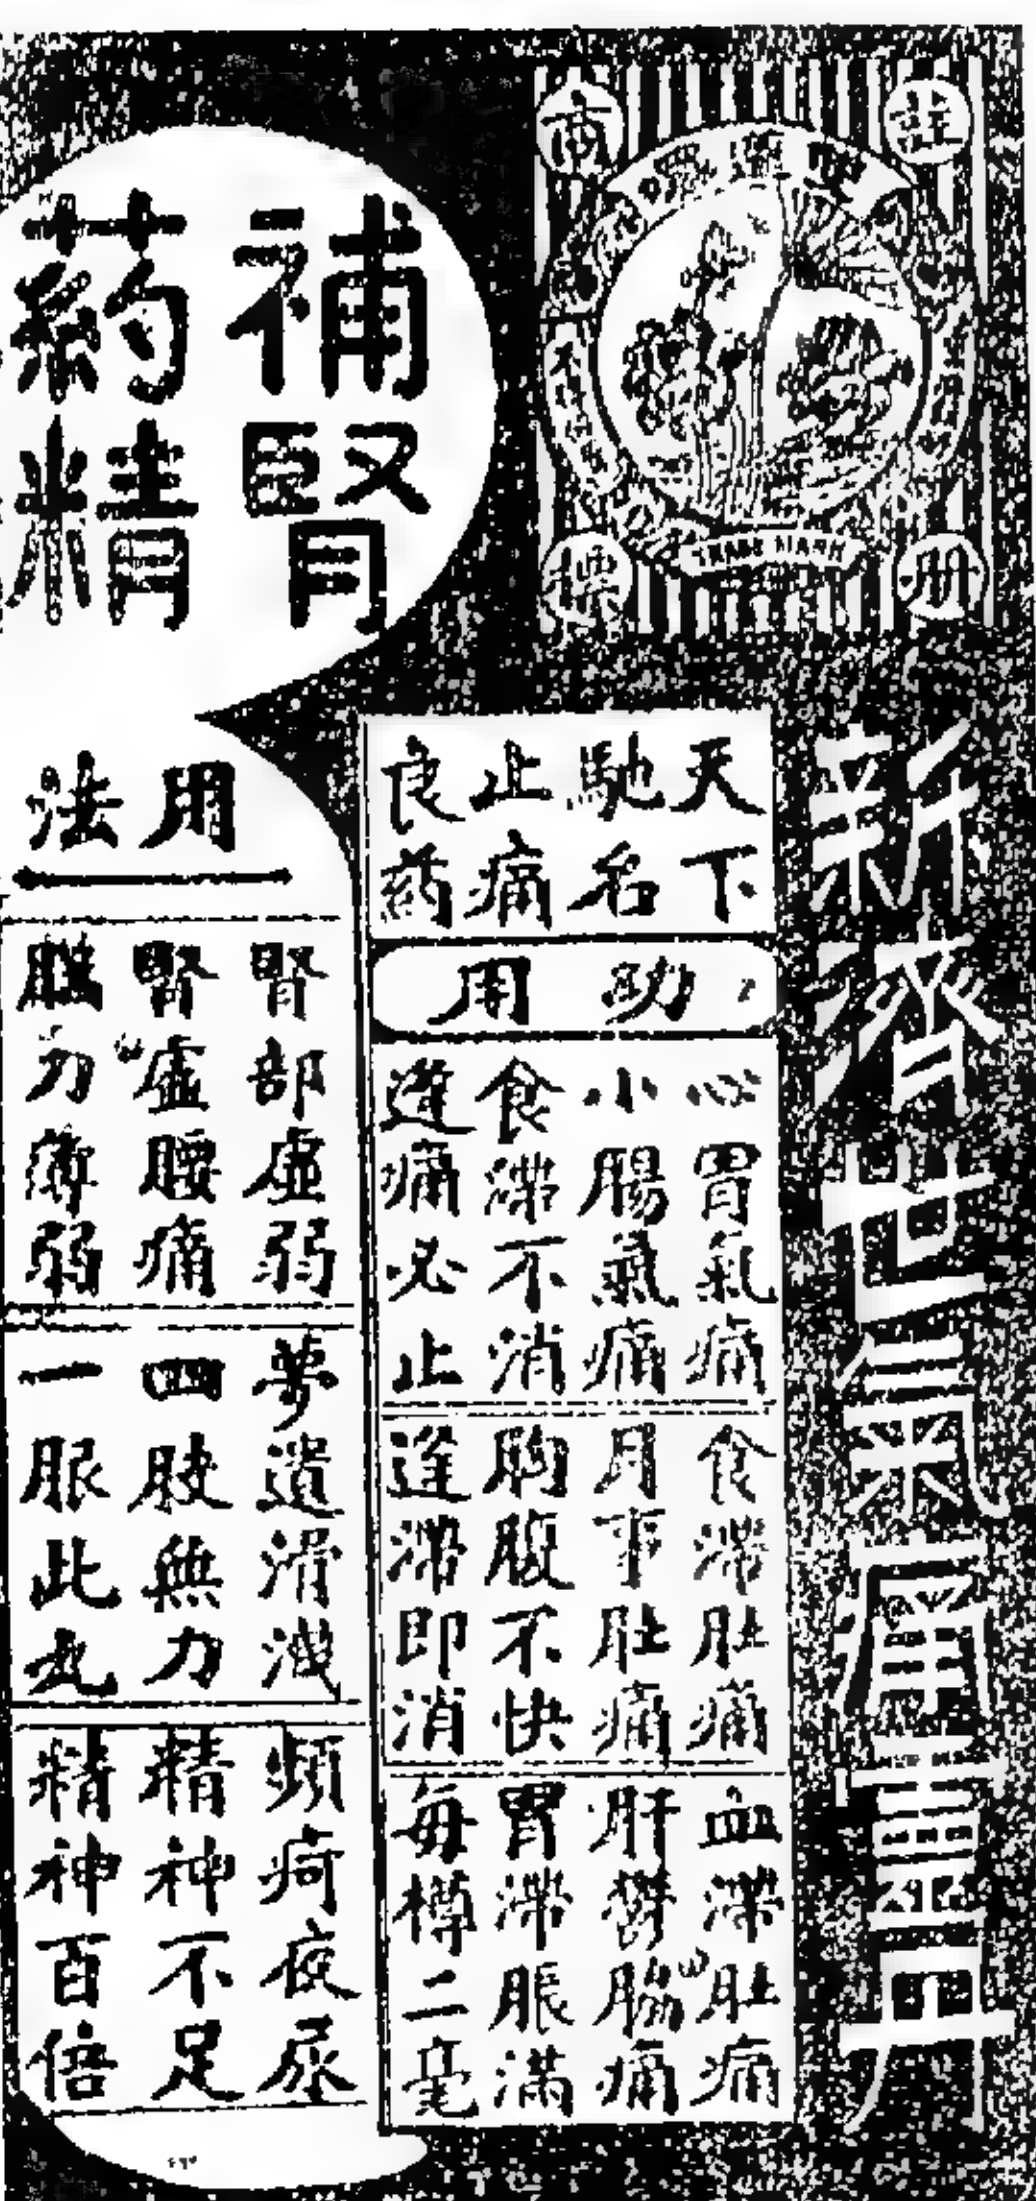 註冊商標
TRADE MARK
新濟世氣痛靈丹
天下
馳名
止痛
良葯
功用
心胃氣痛
小腸氣痛
食滯不消
逢痛必止
食滯肚痛
月事肚痛
胸腹不快
逢滯即消
血滯肚痛
肝鬱脇痛
胃滯脹滿
每樽二毫
補腎
葯精
用法
腎部虛弱
腎虛腰痛
腦力薄弱
夢遺滑洩
四肢無力
一服此丸
頻疴夜尿
精神不足
精神百倍